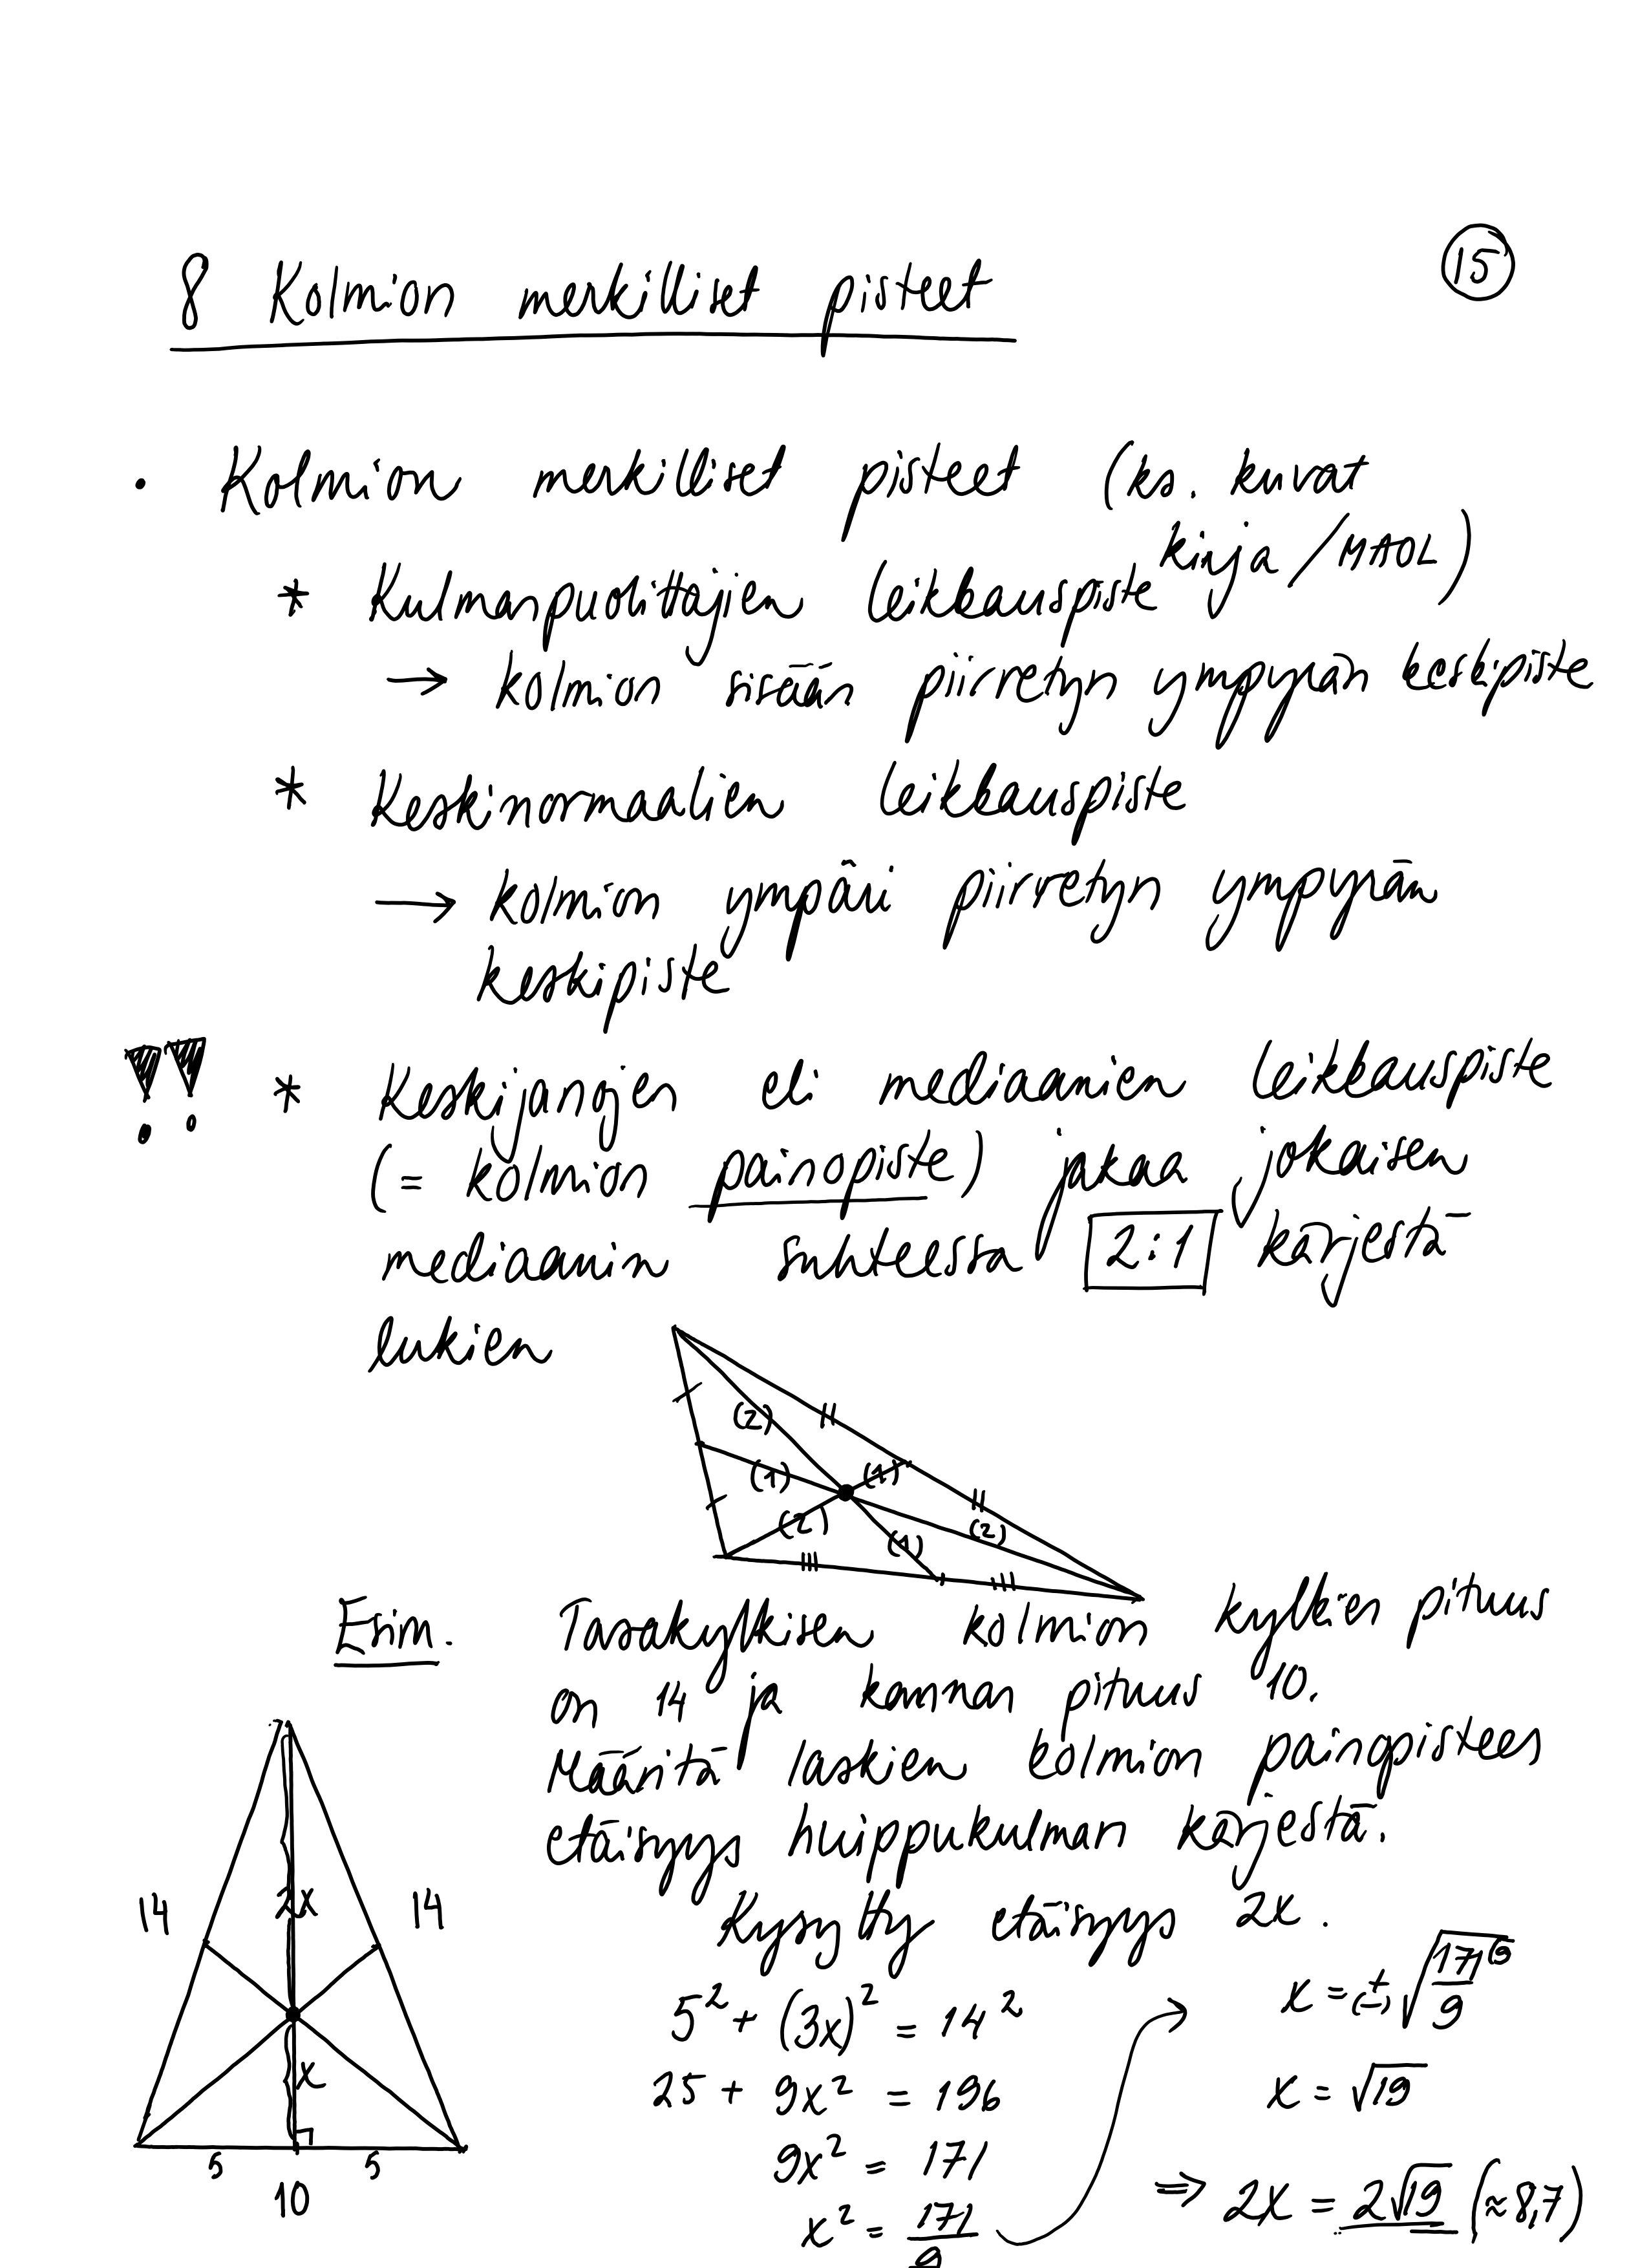 8 Kolmion merkilliset pisteet
15
• Kolmion merkilliset pisteet (ks. kuvat
kirja / MAOL)
* Kulmanpuolittajien leikkauspiste
→ kolmion sisään piirretyn ympyrän keskipiste
* Keskinormaalien leikkauspiste
→ kolmion ympäri piirretyn ympyrän
keskipiste
!! * Keskijanojen eli mediaanien leikkauspiste
(= kolmion painopiste) jakaa jokaisen
mediaanin suhteessa 2:1 kärjestä
lukien
(2)
(1) (1)
(2) (1) (2)
Esim. Tasakylkisen kolmion kylkien pituus
on 14 ja kannan pituus 10.
Määritä laskien kolmion painopisteen
etäisyys huippukulman kärjestä.
14 2x 14
x
5 5
10
Kysytty etäisyys 2x.
5² + (3x)² = 14²
25 + 9x² = 196
9x² = 171
x² = 171/9
x = ±√(171/9)
x = √19
⇒ 2x = 2√19 (≈ 8,7)